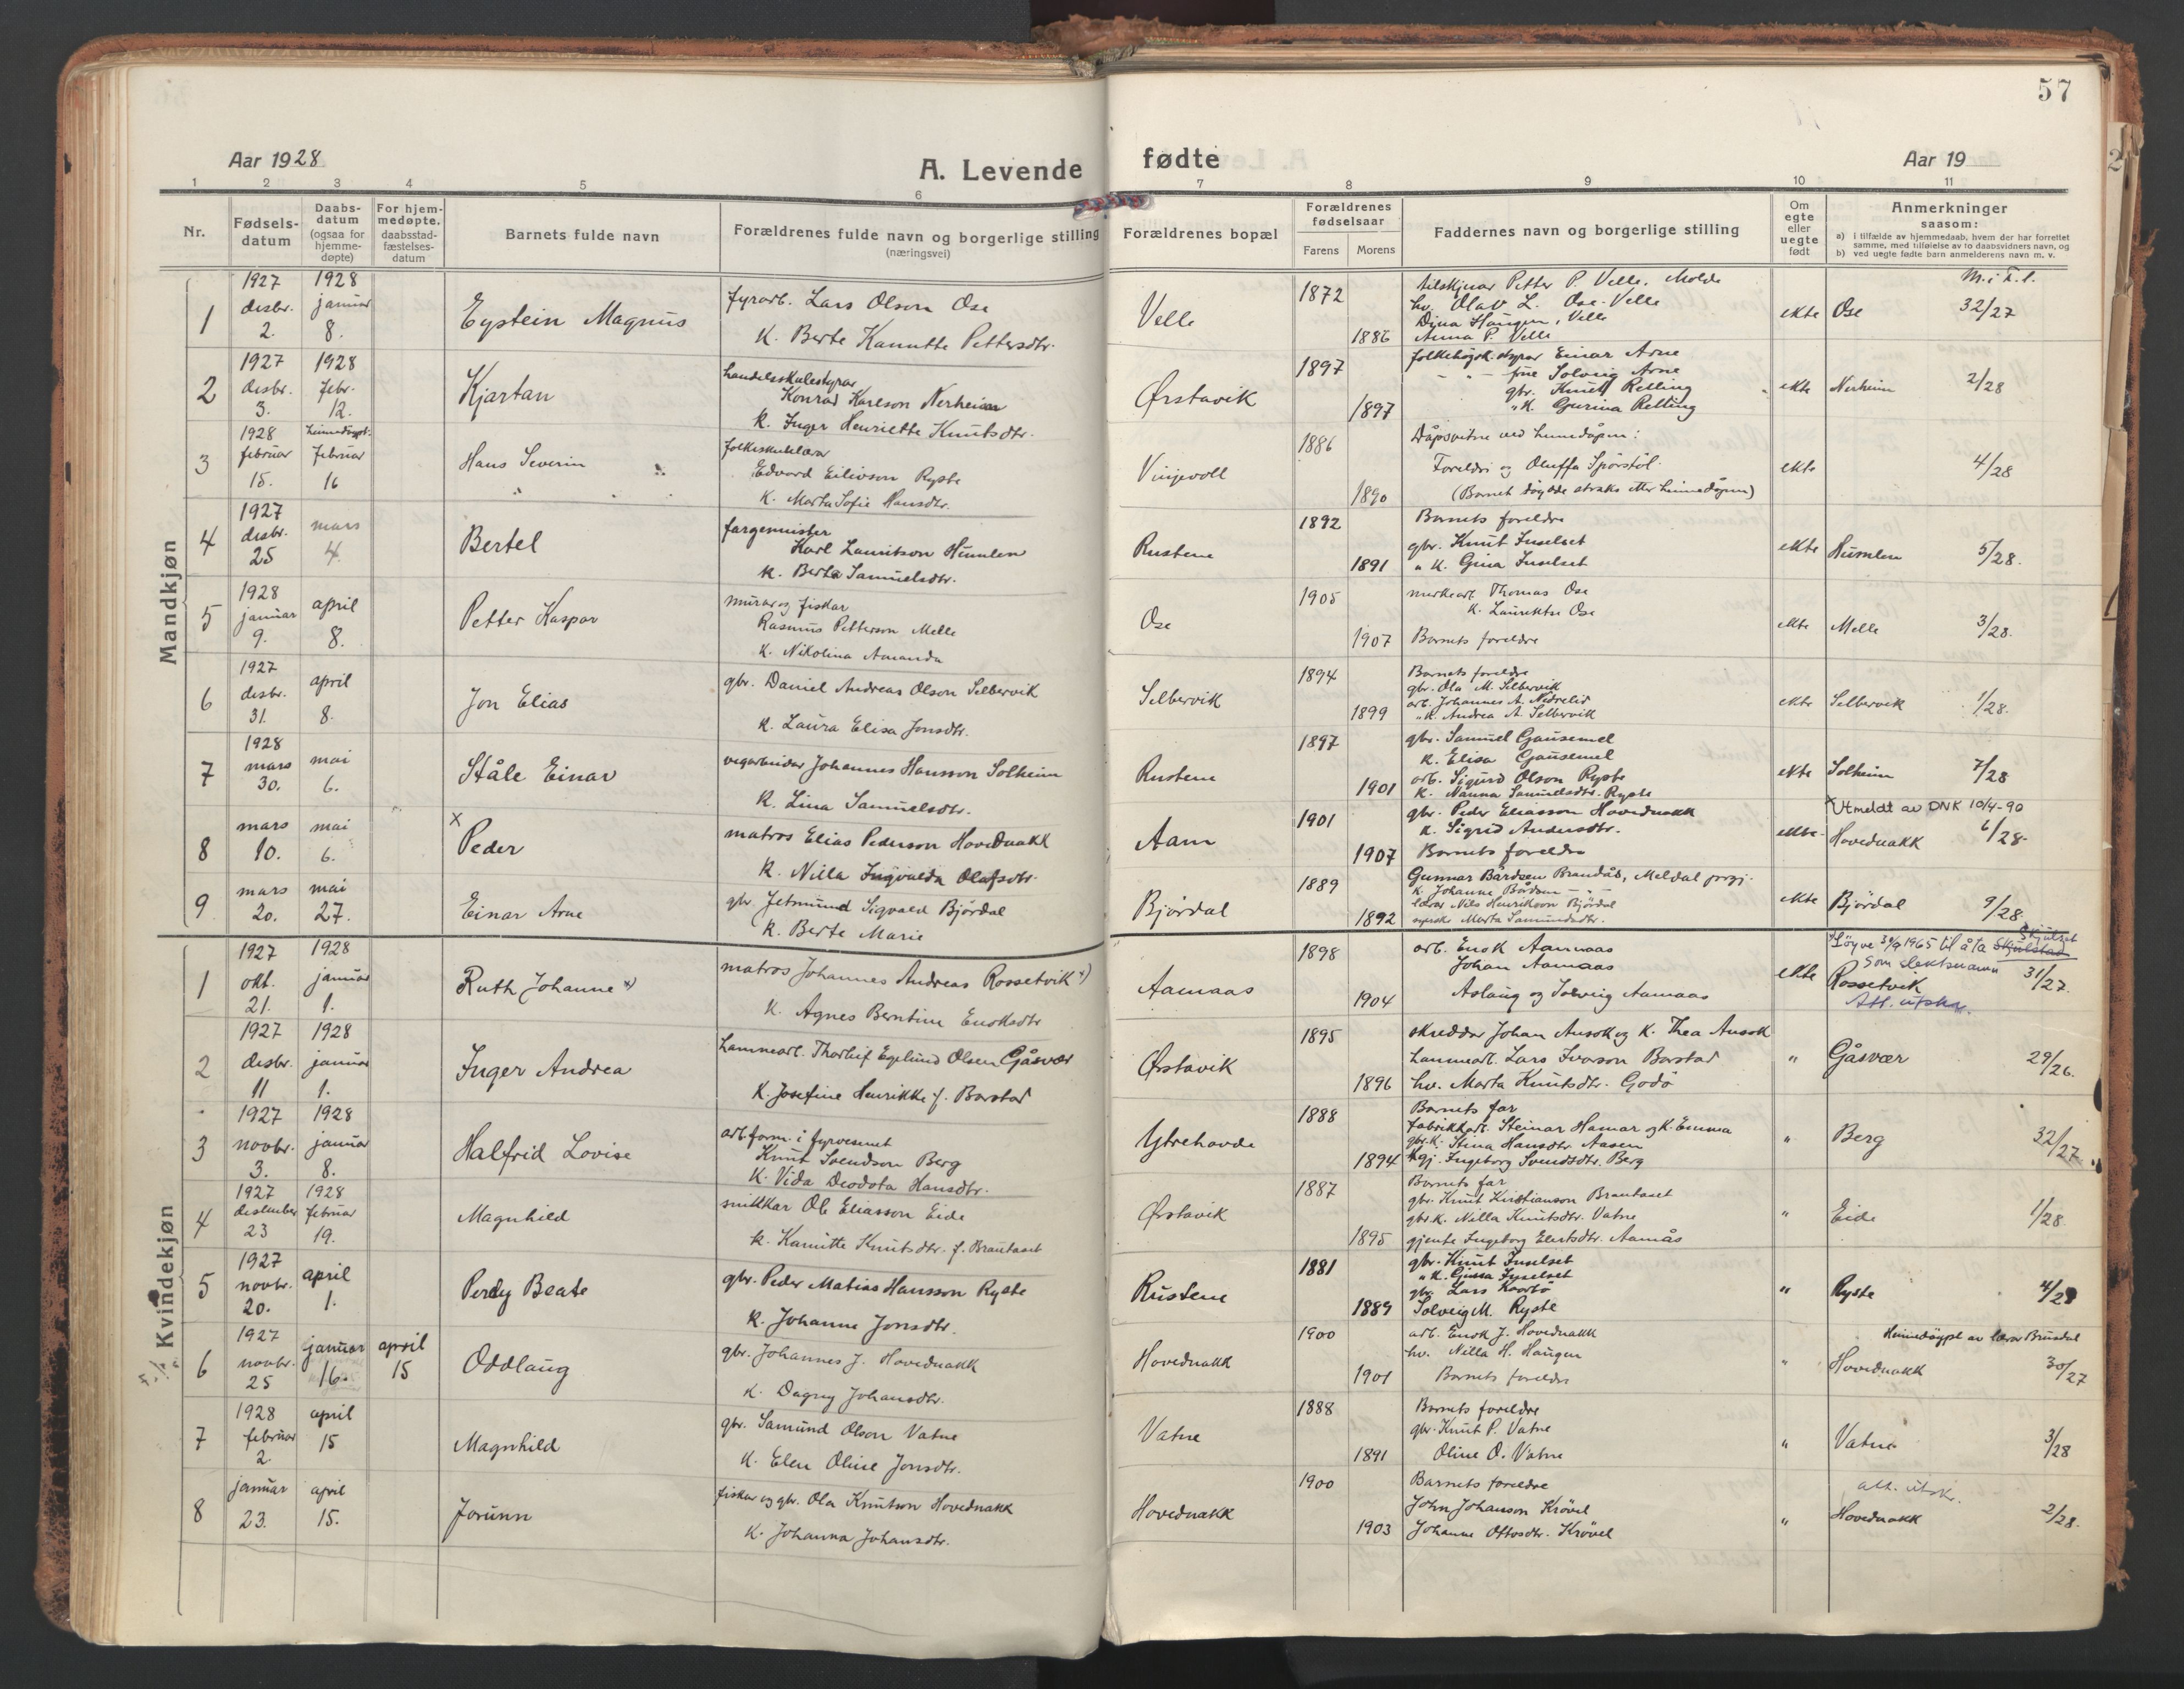 57
Aar 1928
A. Levende
fødte
Aar 19
1 2 3 4 5 6 7 8 9 10 11
Nr.
Fødsels-
datum
Daabs-
datum
(ogsaa for
hjemme-
døpte)
For hjem-
medøpte.
daabsstad-
fæstelses-
datum
Barnets fulde navn
Forældrenes fulde navn og borgerlige stilling
(næringsvei)
Forældrenes bopæl
Forældrenes
fødselsaar
Farens Morens
Faddernes navn og borgerlige stilling
Om
egte
eller
uegte
født
Anmerkninger
saasom:
a) i tilfælde av hjemmedaab, hvem der har forrettet
samme, med tilføielse av to daabsvidners navn, og
b) ved uegte fødte barn anmelderens navn m. v.
Mandkjøn
M. i F. l.
1
1927
desbr.
2.
1928
januar
8.
Eystein Magnus
fyrarb. Lars Olson Ose
K. Berte Kanutte Pettersdtr.
Velle
1872
1886
Petter P. Velle, Molde
hv. Olav L. Ose-Velle
Dina Haugen, Velle
Anna P. Velle
ekte
Ose
32/27
2
1927
desbr.
3.
1928
febr.
12.
Kjartan
handelsskulestyrar
Konrad Karlson Nerheim
K. Inger Henriette Knutsdtr.
Ørstavik
1897
1897
folkehøgsk.styrar Einar Arne
- " - frue Solveig Arne
gbr. Knut Retting
" K. Gurina Retting
ekte
Nerheim
2/28
3
1928
februar
15.
heimedøypt:
februar
16
Hans Severin
folkeskulelærar
Edvard Eilivson Ryste
K. Marta Sofie Hansdtr.
Vinjevoll
1886
1890
Dåpsvitne ved heimedåpen:
Foreldri og Oluffa Sporstøl.
(Barnet døydde straks etter heimedåpen)
ekte
4/28
4
1927
desbr.
25
mars
4.
Bertel
fargemeister
Karl Lauritson Humlen
K. Berta Samuelsdtr.
Rustene
1892
1891
Barnets foreldre
gbr. Knut Inselset
" K. Gina Inselset
ekte
Humlen
5/28.
5
1928
januar
9.
april
8.
Petter Kaspar
murar og fiskar
Rasmus Petterson Melle
K. Nikolina Amanda
Ose
1905
1907
Thomas Ose
K. Laurektse Ose
Barnets foreldre
ekte
Melle
3/28.
6
1927
desbr.
31.
april
8.
Jon Elias
gbr. Daniel Andreas Olson Selbervik
K. Laura Elisa Jonsdtr.
Selbervik
1894
1899
Barnets foreldre
gbr. Ola M. Selbervik
arb. Johannes A. Nedrelid
" K. Andrea A. Selbervik
ekte
Selbervik
1/28.
7
1928
mars
30.
mai
6.
Ståle Einar
vegarbeidar Johannes Hansson Solheim
K. Lina Samuelsdtr.
Rustene
1897
1901
gbr. Samuel Gausemel
K. Elisa Gausemel
arb. Sigurd Olson Ryste
K. Nanna Samuelsdtr. Ryste
ekte
Solheim
7/28
8
mars
10.
mai
6.
x
Peder
matros Elias Pederson Hovednakk
K. Nilla Ingvalda Olafsdtr.
Aam
1901
1907
gbr. Peder Eliasson Hovednakk
K. Sigrid Andersdtr.
Barnets foreldre
ekte
x Utmeldt av DNK 10/4-90
Hovednakk
6/28.
9
mars
20.
mai
27.
Einar Arne
gbr. Jetmund Sigvald Bjørdal
K. Berte Marie
Bjørdal
1889
1892
Gunnar Bårdsen Brandås, Meldal prgj.
K. Johanne Bårdsen - " -
lærar Nils Henrikson Bjørdal
Marta Samundsdtr.
ekte
Bjørdal
9/28
Kvindekjøn
1
1927
okt.
21.
1928
januar
1.
Ruth Johanne x)
matros Johannes Andreas Rossetvik x)
K. Agnes Berntine Enoksdtr
Aamaas
1898
1904
arb. Enok Aamaas
Johan Aamaas
Aslaug og Solveig Aamaas
ekte
x Løyve 30/9 1965 til å ta Skjulstad Skjulset
som slektsnamn
Rossetvik
31/27.
Att. utskr.
2
1927
desbr.
11
1928
januar
1.
Inger Andrea
hamnearb. Thorleif Egelund Olsen Gåsvær
K. Josefine Henrikke f. Barstad
Ørstavik
1895
1896
skreddar Johan Aasok og K. Thea Aasok
hamnearb. Lars Ivarson Barstad
hv. Marta Knutsdtr. Godø
"
Gåsvær
29/26.
3
1927
novbr.
3.
1928
januar
8.
Halfrid Lovise
arb.form. i fyrvesenet
Knut Svendson Berg
K. Vida Deodata Hansdtr.
Ytrehovde
1888
1894
Barnets far
fabrikkarb. Steinar Hamar og K. Emma
gbr.K. Stina Hansdtr. Aasen
gj. Ingeborg Svendsdtr. Berg
"
Berg
32/27
4
1927
desember
23
1928
februar
19.
Magnhild
snikkar Ole Eliasson Eide
K. Kanutte Knutsdtr. f. Brautaset
Ørstavik
1887
1895
Barnets far
gbr. Knut Kristianson Brautaset
gbr.K. Nilla Knutsdtr. Vatne
gjente Ingeborg Elertsdtr. Aamås
"
Eide
1/28.
5
1927
novbr.
20.
april
1.
Perdy Beate
gbr. Peder Matias Hansson Ryste
K. Johanne Jonsdtr.
Rustene
1881
1889
gbr. Knut Inselset
" K. Ginna Inselset
gbr. Lars Kvarbø
Solveig M. Ryste
"
Ryste
4/28
6
1927
novbr.
25
januar
16.
april
15
Oddlaug
gbr. Johannes J. Hovednakk
K. Dagny Johansdtr.
Hovednakk
1900
1901
arb. Enok J. Hovednakk
hv. Nilla H. Haugen
Barnets foreldre
"
Heimedøypt av lærar Brusdal
Hovednakk
30/27
7
1928
februar
2.
april
15
Magnhild
gbr. Samund Olson Vatne
K. Elen Oline Jonsdtr.
Vatne
1888
1891
Barnets foreldre
gbr. Knut P. Vatne
Oline O. Vatne
"
Vatne
3/28
8
januar
23.
april
15.
Jorunn
fiskar og gbr. Ola Knutson Hovednakk
K. Johanna Johansdtr.
Hovednakk
1900
1903
Barnets foreldre
John Johanson Krøvel
Johanne Ottosdtr. Krøvel
"
att. utskr.
Hovednakk
2/28.